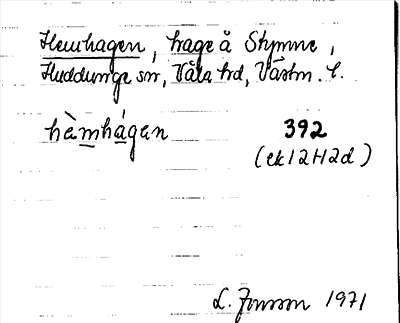 Hemhagen, hage å Stymne,
Huddunge sn, Våla hd, Västm. l.
hȁmhágen 392
(ek 12H2d)
L. Jonsson 1971